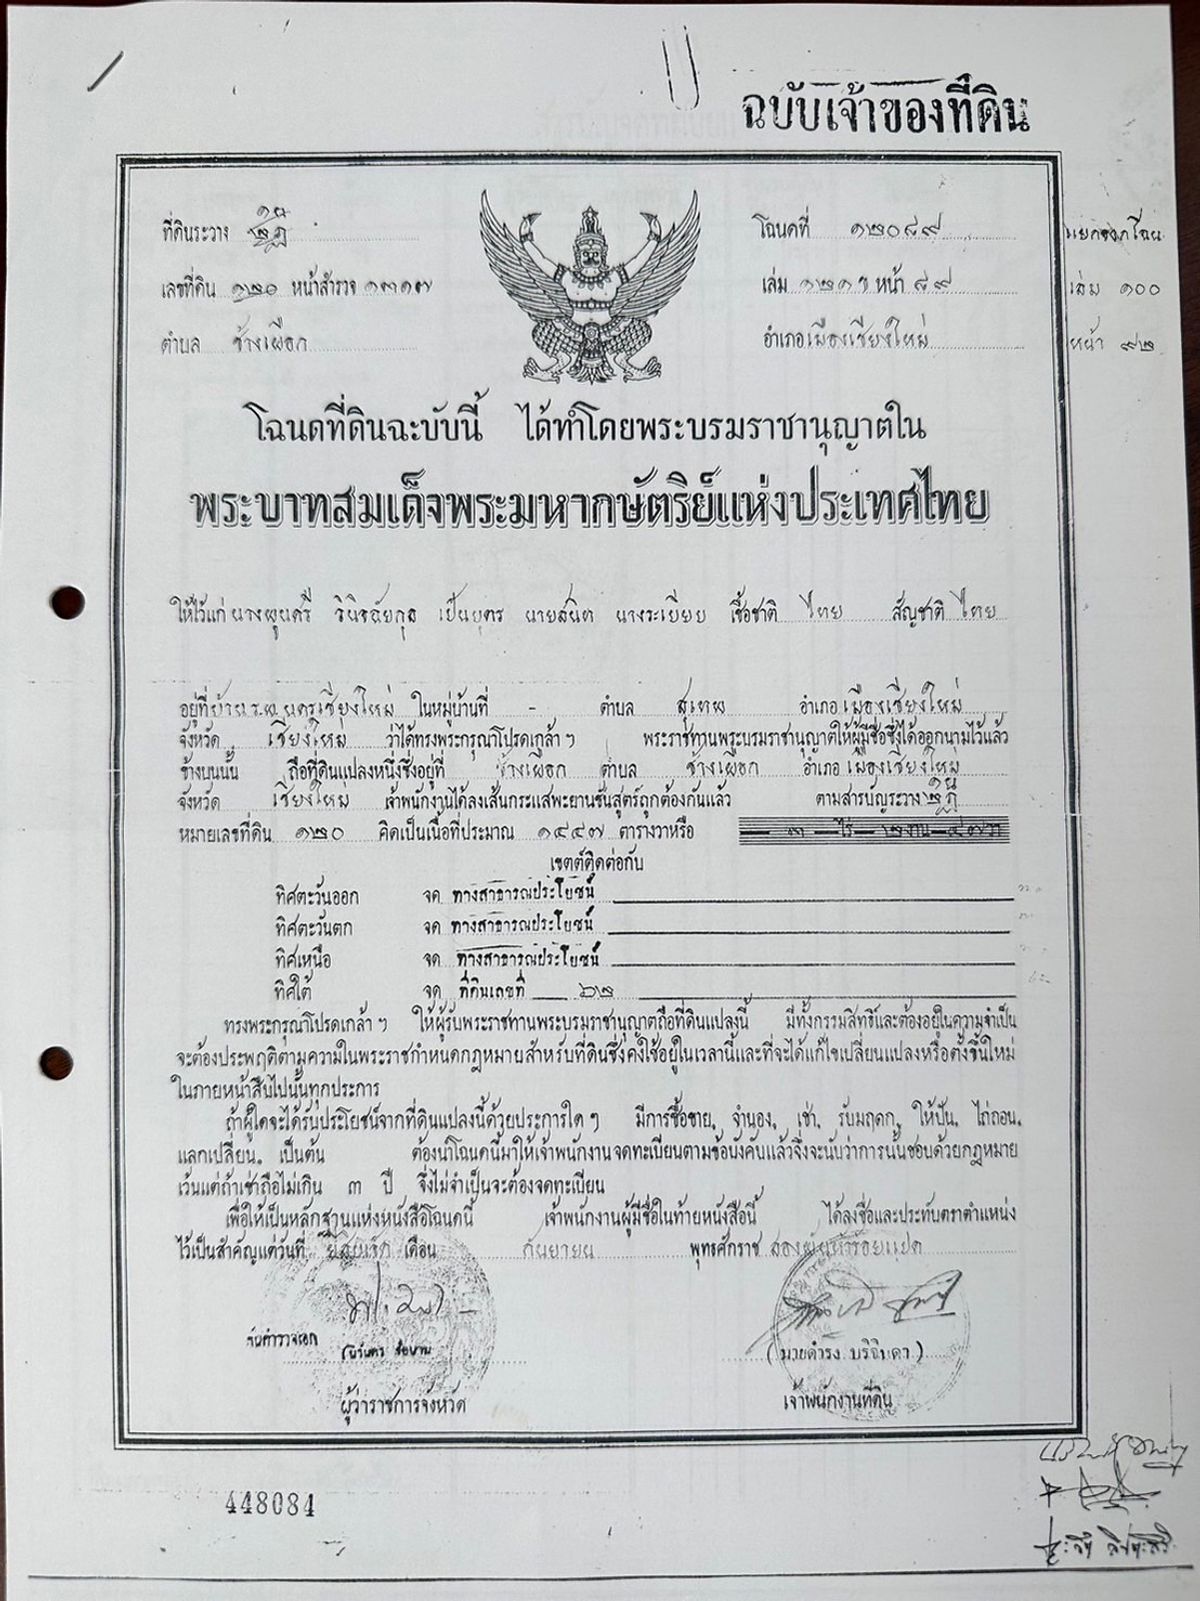 ฉบับเจ้าของที่ดิน
ที่ดินระวาง
โฉนดที่ ๑๒๐๘๙
เลขที่ดิน ๑๒๐ หน้าสำรวจ ๑๓๑๗
เล่ม ๑๒๑ หน้า ๘๙
เล่ม ๑๐๐
ตำบล ช้างเผือก
อำเภอเมืองเชียงใหม่
หน้า ๙๒
โฉนดที่ดินฉะบับนี้ ได้ทำโดยพระบรมราชานุญาตใน
พระบาทสมเด็จพระมหากษัตริย์แห่งประเทศไทย
ให้ไว้แก่ นางพูนศรี วินิจฉัยกุล เป็นบุตร นายสนิท นางระเบียบ เชื้อชาติ ไทย สัญชาติ ไทย
อยู่ที่บ้านร.พ.นครเชียงใหม่ ในหมู่บ้านที่ - ตำบล สุเทพ อำเภอ เมืองเชียงใหม่
จังหวัด เชียงใหม่ ว่าได้ทรงพระกรุณาโปรดเกล้า ฯ พระราชทานพระบรมราชานุญาตให้ผู้มีชื่อซึ่งได้ออกนามไว้แล้ว
ข้างบนนั้น ถือที่ดินแปลงหนึ่งซึ่งอยู่ที่ ช้างเผือก ตำบล ช้างเผือก อำเภอ เมืองเชียงใหม่
จังหวัด เชียงใหม่ เจ้าพนักงานได้ลงเส้นกระแสพะยานชันสูตร์ถูกต้องกันแล้ว ตามสารบัญระวาง
หมายเลขที่ดิน ๑๒๐ คิดเป็นเนื้อที่ประมาณ ๑๔๔๗ ตารางวาหรือ ๓ ไร่ ๒ งาน ๔๗ วา
เขตต์ติดต่อกับ
ทิศตะวันออก จด ทางสาธารณประโยชน์
ทิศตะวันตก จด ทางสาธารณประโยชน์
ทิศเหนือ จด ทางสาธารณประโยชน์
ทิศใต้ จด ที่ดินเลขที่ ๖๒
ทรงพระกรุณาโปรดเกล้า ฯ ให้ผู้รับพระราชทานพระบรมราชานุญาตถือที่ดินแปลงนี้ มีทั้งกรรมสิทธิ์และต้องอยู่ในความจำเป็น
จะต้องประพฤติตามความในพระราชกำหนดกฎหมายสำหรับที่ดินซึ่งคงใช้อยู่ในเวลานี้และที่จะได้แก้ไขเปลี่ยนแปลงหรือตั้งขึ้นใหม่
ในภายหน้าสืบไปนั้นทุกประการ
ถ้าผู้ใดจะได้รับประโยชน์จากที่ดินแปลงนี้ด้วยประการใด ๆ มีการซื้อขาย, จำนอง, เช่า, รับมฤดก, ให้ปัน, ไถ่ถอน,
แลกเปลี่ยน, เป็นต้น ต้องนำโฉนดนี้มาให้เจ้าพนักงานจดทะเบียนตามข้อบังคับแล้วจึ่งจะนับว่าการนั้นชอบด้วยกฎหมาย
เว้นแต่ถ้าเช่าถือไม่เกิน ๓ ปี จึ่งไม่จำเป็นจะต้องจดทะเบียน
เพื่อให้เป็นหลักฐานแห่งหนังสือโฉนดนี้ เจ้าพนักงานผู้มีชื่อในท้ายหนังสือนี้ ได้ลงชื่อและประทับตราตำแหน่ง
ไว้เป็นสำคัญแต่วันที่ ยี่สิบเจ็ด เดือน กันยายน พุทธศักราช สองพันห้าร้อยแปด
พันตำรวจเอก
(นิรันดร ชัยนาม)
(นายดำรง บริจินดา)
ผู้ว่าราชการจังหวัด
เจ้าพนักงานที่ดิน
448084